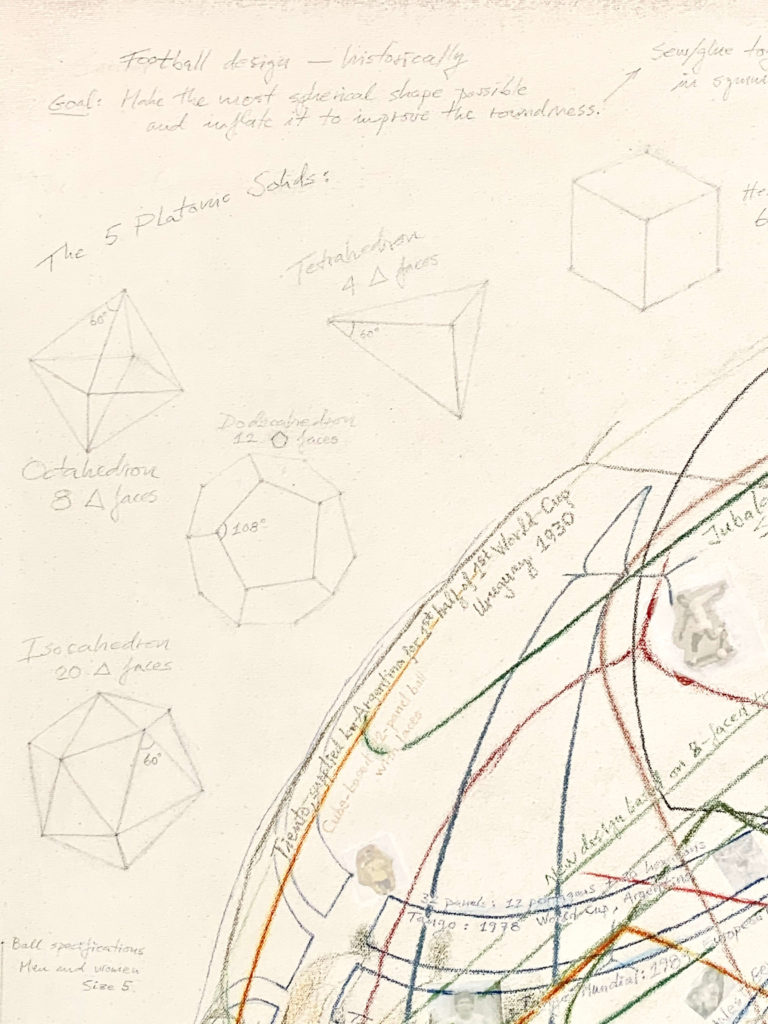 Football design — historically
Goal: Make the most spherical shape possible
and inflate it to improve the roundness.
Sew/glue
in
The 5 Platonic Solids:
Tetrahedron
4 △ faces
60°
60°
Octahedron
8 △ faces
Dodecahedron
12 ⬠ faces
108°
Isocahedron
20 △ faces
60°
Tiento-supplied by Argentina for 1st half of 1st World-Cup
Uruguay 1930
12-panel ball
with faces
New design based on 8-faced
32 panels: 12 pentagons
Tango: 1978 World Cup, Argentina
Mundial:
Ball specifications
Men and women
Size 5.